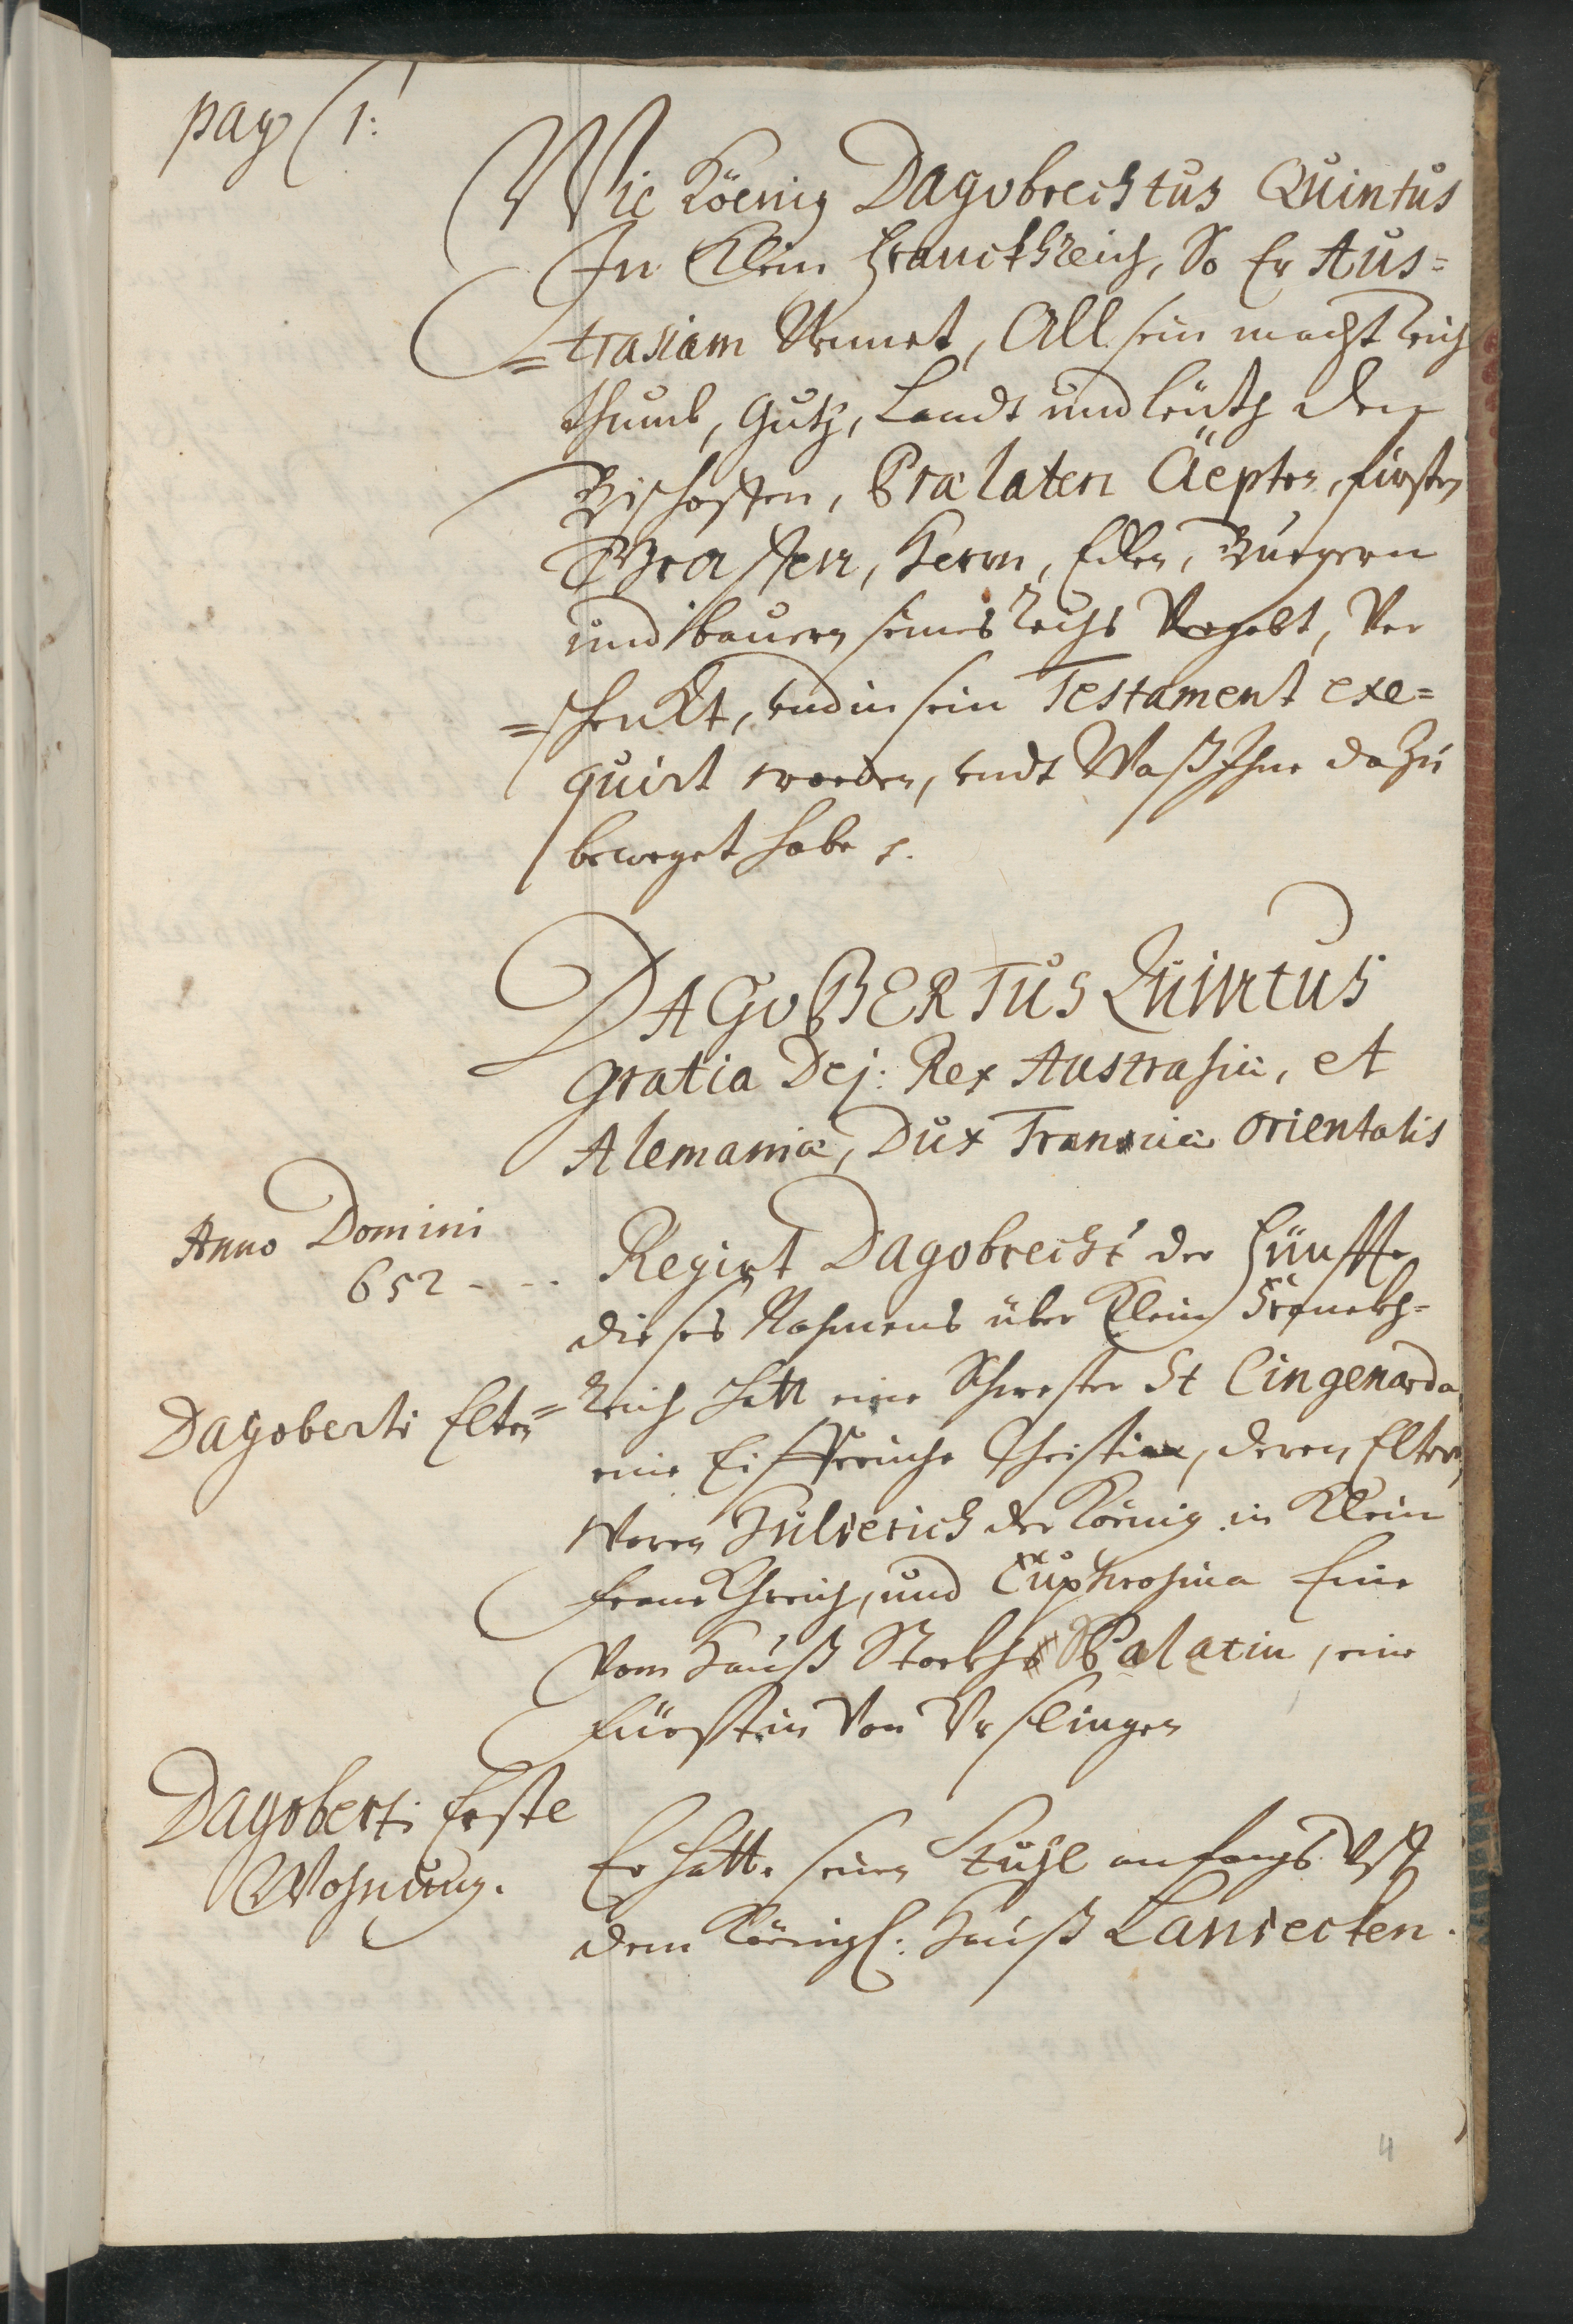 pag (1:
Wie Köenig Dagobrechtus Quintus
In Klein Franckhreich, So Er Aus=
=trasiam Nennet, All sein macht reich
thumb, Gutz, Landt und leüth den
Bischoffen, Prælaten Äepten, fürsten
Graffen, Herrn, Edlen, Burgern
und bauern seines reichs Vergabt, Ver
=schenkt, und in sein Testament exe=
quirt worden, undt Waß Ihne dazu
beweget habe
DAGOBERTUS Quintus
gratia Dej: Rex Austrasiæ, et
Alemaniæ, Dux Franciæ orientalis
Anno Domini
652 - - -
Regirt Dagobrecht der Fünffte
dieses Nahmens über Klein Franckh=
Dagoberti Elten=
Reich hatt eine Schwester St Eingenarda
eine Eifferiche Christin, deren Eltern,
Waren Hilderich der Koenig in Klein
franckhreich, und Euphrosina Eine
Vom Hauß Palatin, eine
fürstin Von Urslingen
Dagoberti Erste
Wohnung.
Er hatte seinen Stuhl anfangs Uff
dem Königl: Hauß Lansecten.
4